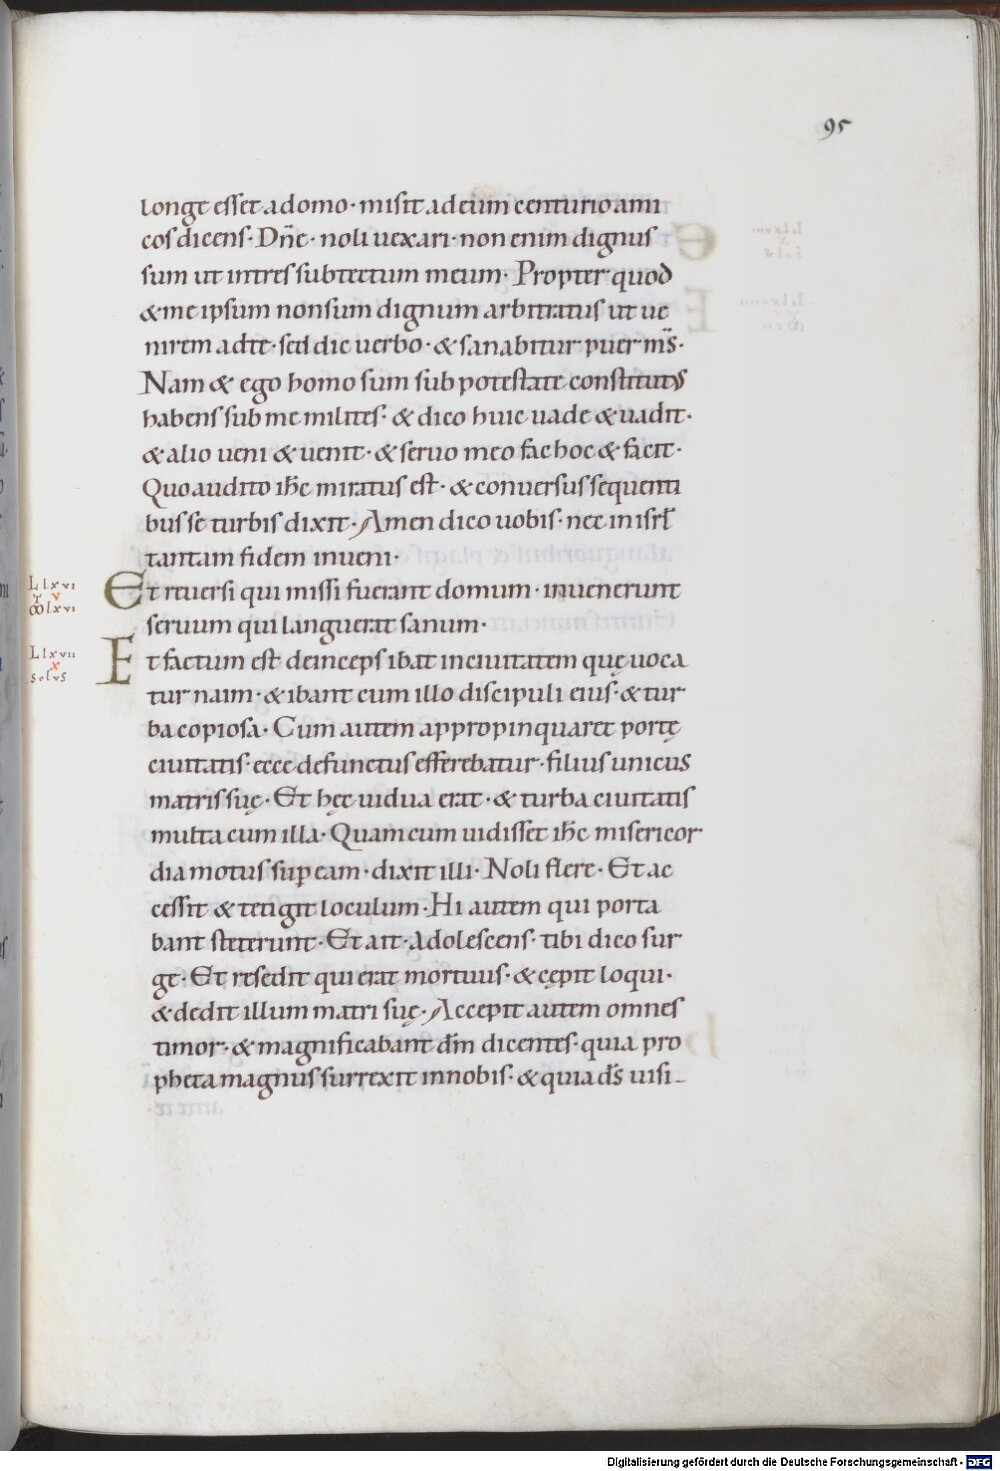 95
longe esset adomo · misit adeum centurio ami
cos dicens · Dn̄e · noli uexari · non enim dignus
sum ut intres sub tectum meum · Propter quod
& me ipsum non sum dignum arbitratus ut ue
nirem ad te · sed dic uerbo · & sanabitur puer ms̄ ·
Nam & ego homo sum sub potestate constitutus
habens sub me milites · & dico huic uade & uadit ·
& alio ueni & uenit · & seruo meo fac hoc & facit ·
Quo audito ih̄c miratus est · & conuersus sequenti
bus se turbis dixit · Amen dico uobis · nec in isrł
tantam fidem inueni ·
L lxvi
v
ꝏ lxvi
Et reuersi qui missi fuerant domum · inuenerunt
seruum qui languerat sanum ·
L lxvii
x
solvs
Et factum est deinceps ibat in ciuitatem quę uoca
tur naim · & ibant cum illo discipuli eius · & tur
ba copiosa · Cum autem appropinquaret portę
ciuitatis · ecce defunctus efferebatur · filius unicus
matris suę · Et hęc uidua erat · & turba ciuitatis
multa cum illa · Quam cum uidisset ih̄c misericor
dia motus sup eam · dixit illi · Noli flere · Et ac
cessit & tetigit loculum · Hi autem qui porta
bant steterunt · Et ait · Adolescens · tibi dico sur
ge · Et resedit qui erat mortuus · & cępit loqui ·
& dedit illum matri suę · Accepit autem omnes
timor · & magnificabant dm̄ dicentes · quia pro
pheta magnus surrexit in nobis · & quia ds̄ uisi
Digitalisierung gefördert durch die Deutsche Forschungsgemeinschaft - DFG